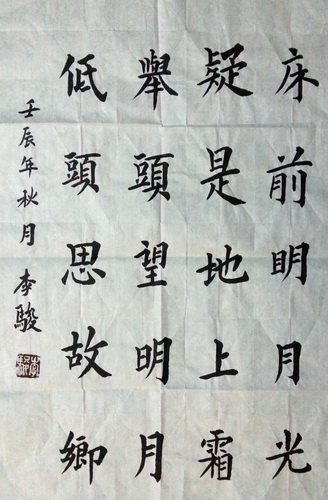 床前明月光
疑是地上霜
舉頭望明月
低頭思故鄉
壬辰年秋月 李駿